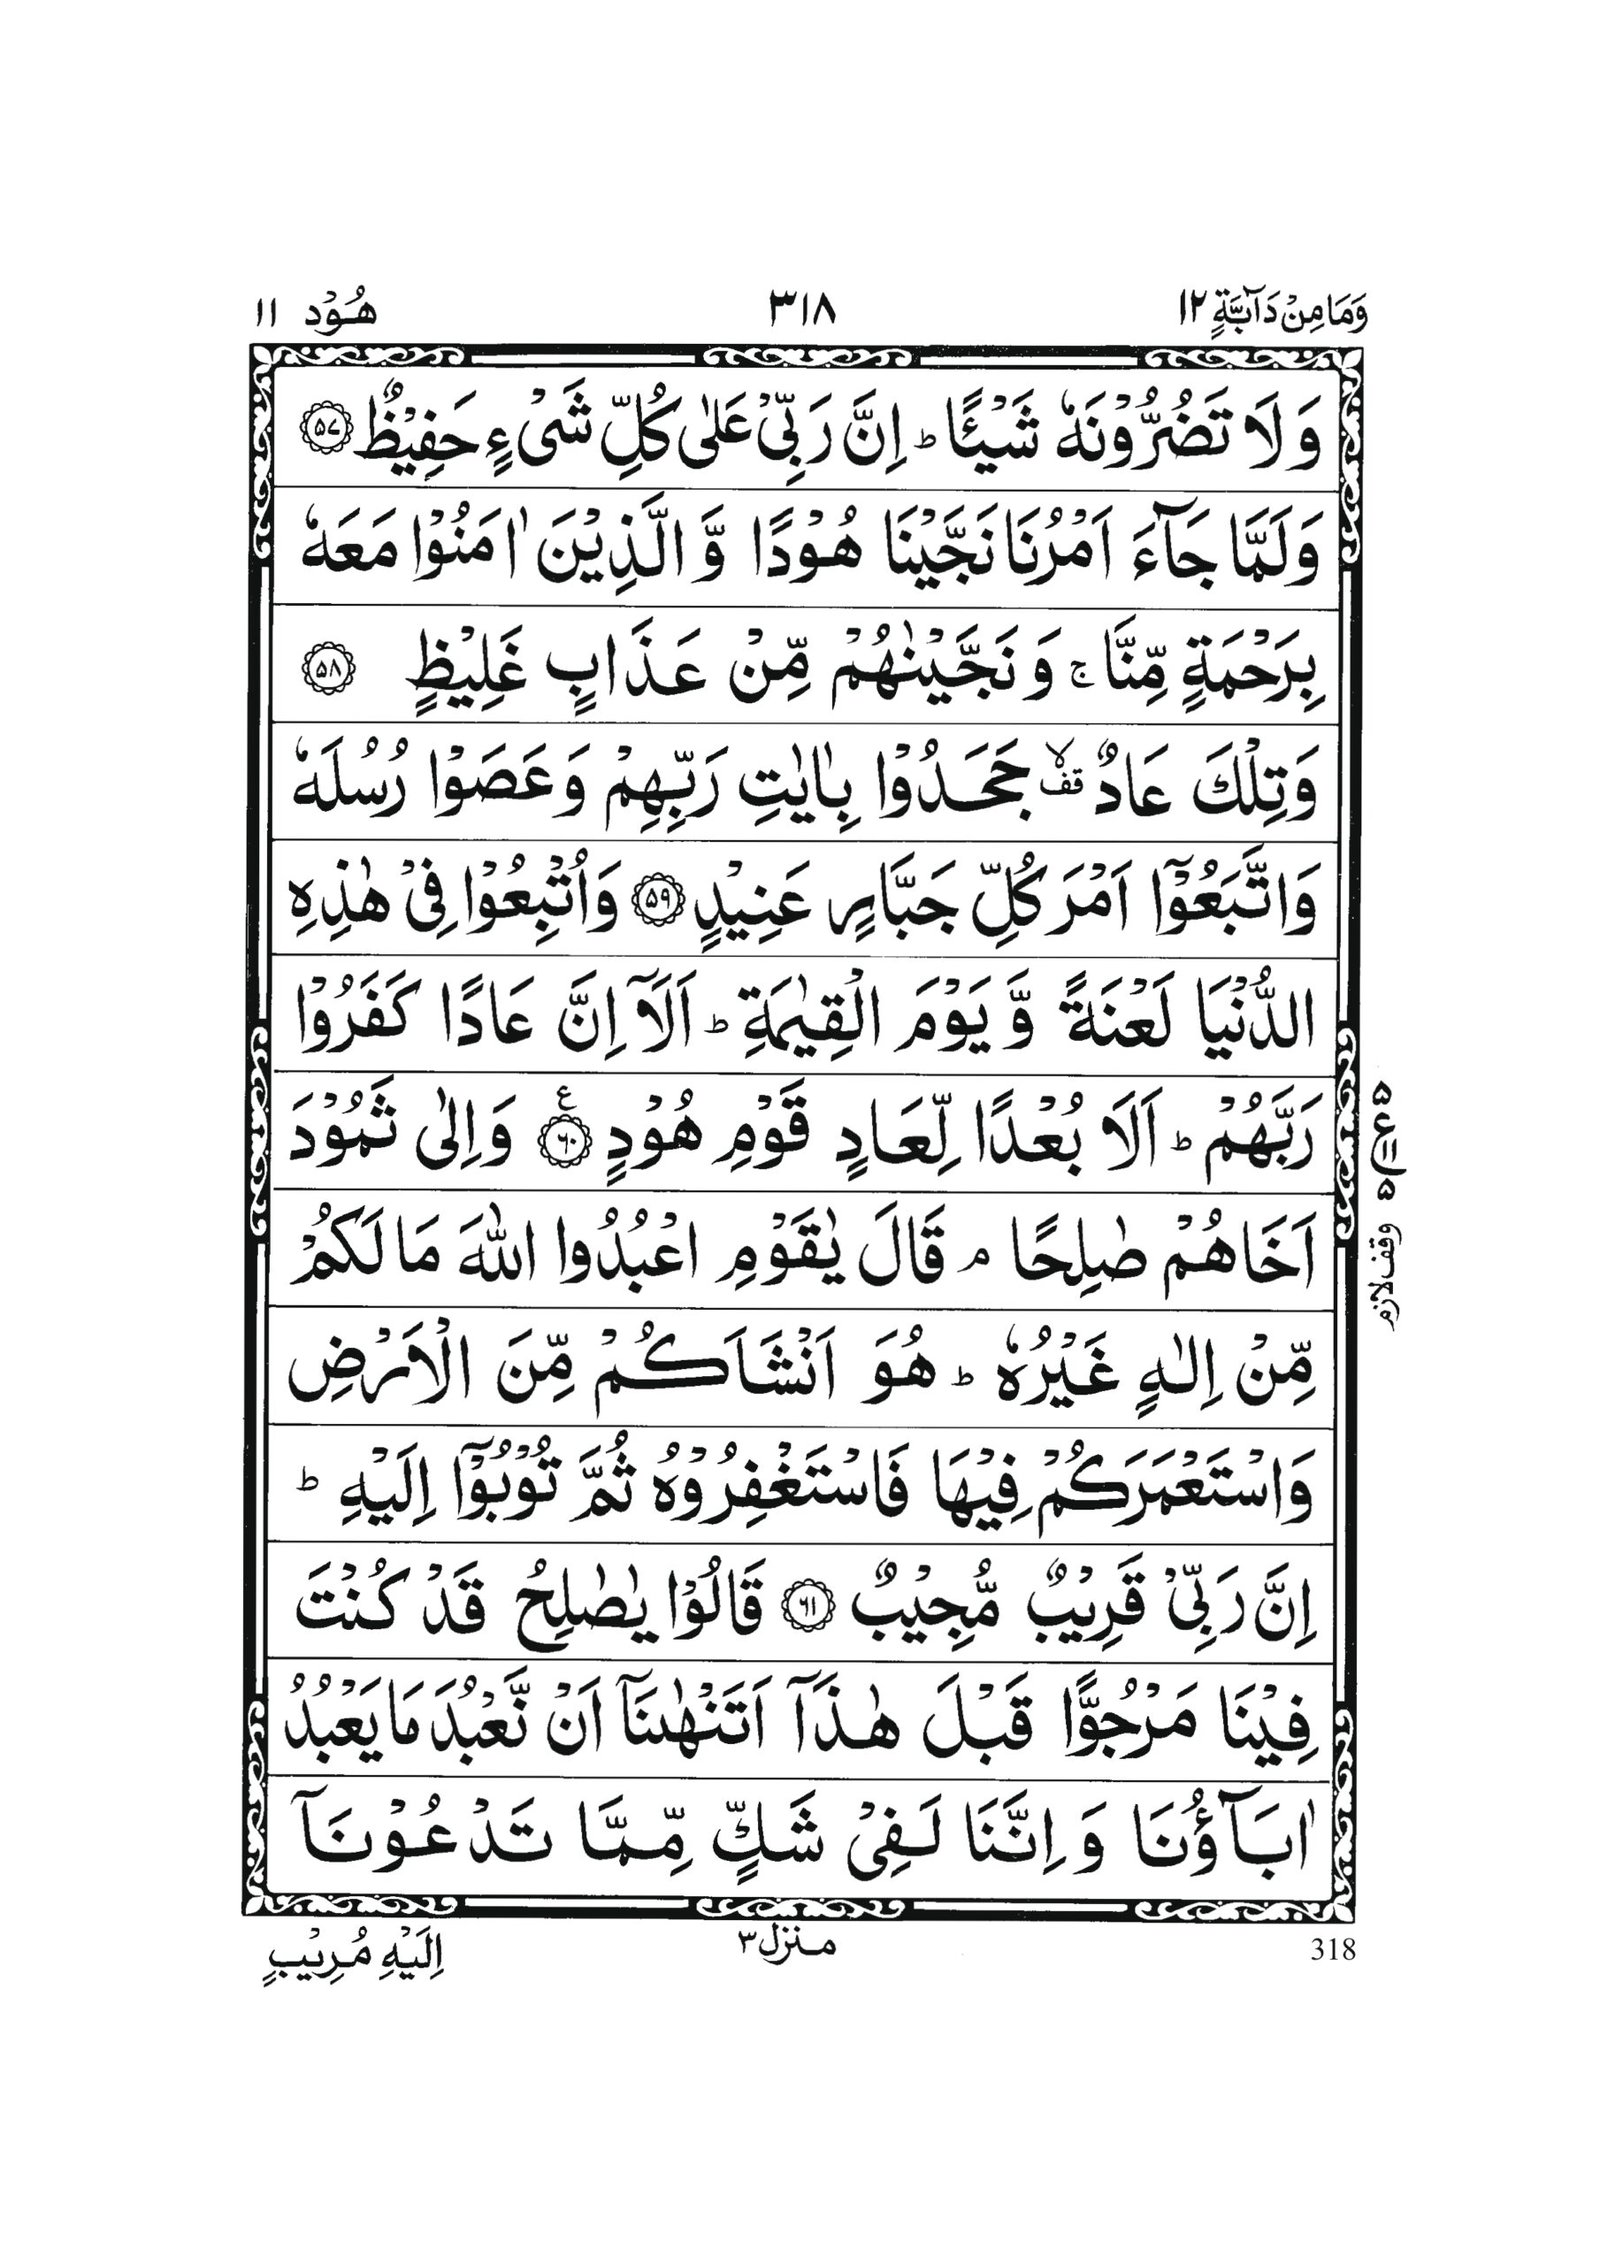 وَمَا مِنْ دَآبَّةٍ ١٢ ٣١٨ هُوْد ١١
وَلَا تَضُرُّوْنَهٗ شَيْـًٔا ؕ اِنَّ رَبِّيْ عَلٰى كُلِّ شَيْءٍ حَفِيْظٌ ۝۵۷
وَلَمَّا جَآءَ اَمْرُنَا نَجَّيْنَا هُوْدًا وَّ الَّذِيْنَ اٰمَنُوْا مَعَهٗ
بِرَحْمَةٍ مِّنَّا ۚ وَ نَجَّيْنٰهُمْ مِّنْ عَذَابٍ غَلِيْظٍ ۝۵۸
وَتِلْكَ عَادٌ ۙقف جَحَدُوْا بِاٰيٰتِ رَبِّهِمْ وَ عَصَوْا رُسُلَهٗ
وَاتَّبَعُوْٓا اَمْرَ كُلِّ جَبَّارٍ عَنِيْدٍ ۝۵۹ وَاُتْبِعُوْا فِيْ هٰذِهِ
الدُّنْيَا لَعْنَةً وَّ يَوْمَ الْقِيٰمَةِ ؕ اَلَآ اِنَّ عَادًا كَفَرُوْا
رَبَّهُمْ ؕ اَلَا بُعْدًا لِّعَادٍ قَوْمِ هُوْدٍ ۝۶۰ ع وَاِلٰى ثَمُوْدَ
اَخَاهُمْ صٰلِحًا ۘ قَالَ يٰقَوْمِ اعْبُدُوا اللّٰهَ مَا لَكُمْ
مِّنْ اِلٰهٍ غَيْرُهٗ ؕ هُوَ اَنْشَاَكُمْ مِّنَ الْاَرْضِ
وَاسْتَعْمَرَكُمْ فِيْهَا فَاسْتَغْفِرُوْهُ ثُمَّ تُوْبُوْٓا اِلَيْهِ ؕ
اِنَّ رَبِّيْ قَرِيْبٌ مُّجِيْبٌ ۝۶۱ قَالُوْا يٰصٰلِحُ قَدْ كُنْتَ
فِيْنَا مَرْجُوًّا قَبْلَ هٰذَآ اَتَنْهٰىنَآ اَنْ نَّعْبُدَ مَا يَعْبُدُ
اٰبَآؤُنَا وَ اِنَّنَا لَفِيْ شَكٍّ مِّمَّا تَدْعُوْنَآ
۵ ع ۵
وقف لازم
318 منزل ٣ اِلَيْهِ مُرِيْبٍ